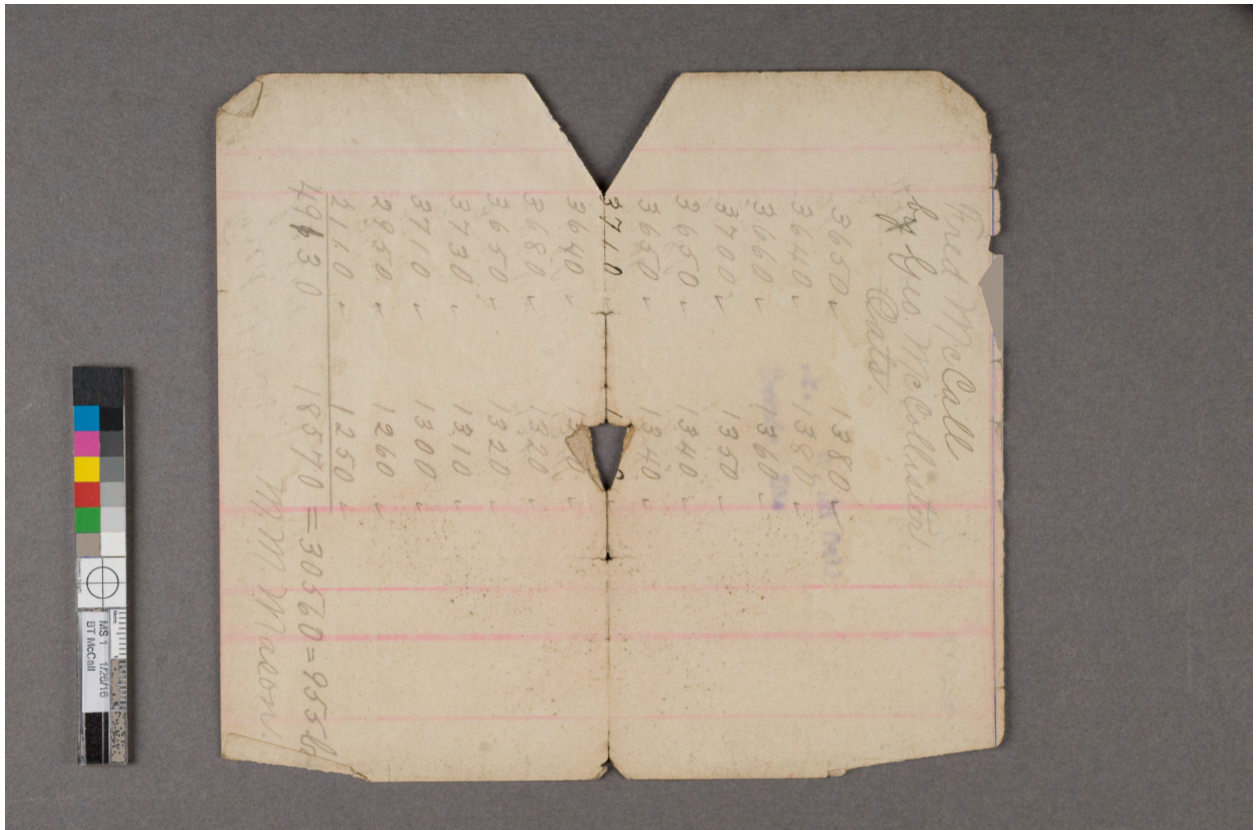 Fred McCall
by Geo. McCollister
Oats.
3650 ✓ 1380 ✓
3640 ✓ 1380 ✓
3660 ✓ 1360 ✓
3700 ✓ 1350 ✓
3650 ✓ 1340 ✓
3650 ✓ 1340 ✓
3710 ✓
3640 ✓
3680 ✓ 1320 ✓
3650 ✓ 1320 ✓
3730 ✓ 1310 ✓
3710 ✓ 1300 ✓
2950 ✓ 1260 ✓
2110 ✓ 1250 ✓
49130 18570 = 30560 = 955 b
M M Mason.
MS 1 1/26/16
BT McCall